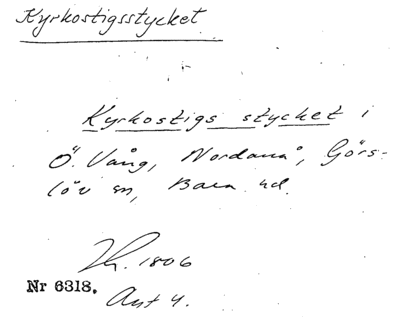 Kyrkostigsstycket
Kyrkostigs stycket i
Ö. Vång, Nordanå, Görs-
löv sn, Bara hd.
1806
Nr 6318.
Akt 4.